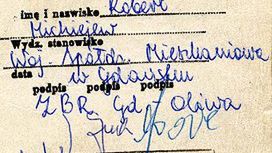 imię i nazwisko Robert
Michniew
Wydz. stanowisko
Woj. Spółdz. Mieszkaniowa
data w Gdańsku
podpis podpis podpis
Z B R. Gd. Oliwa